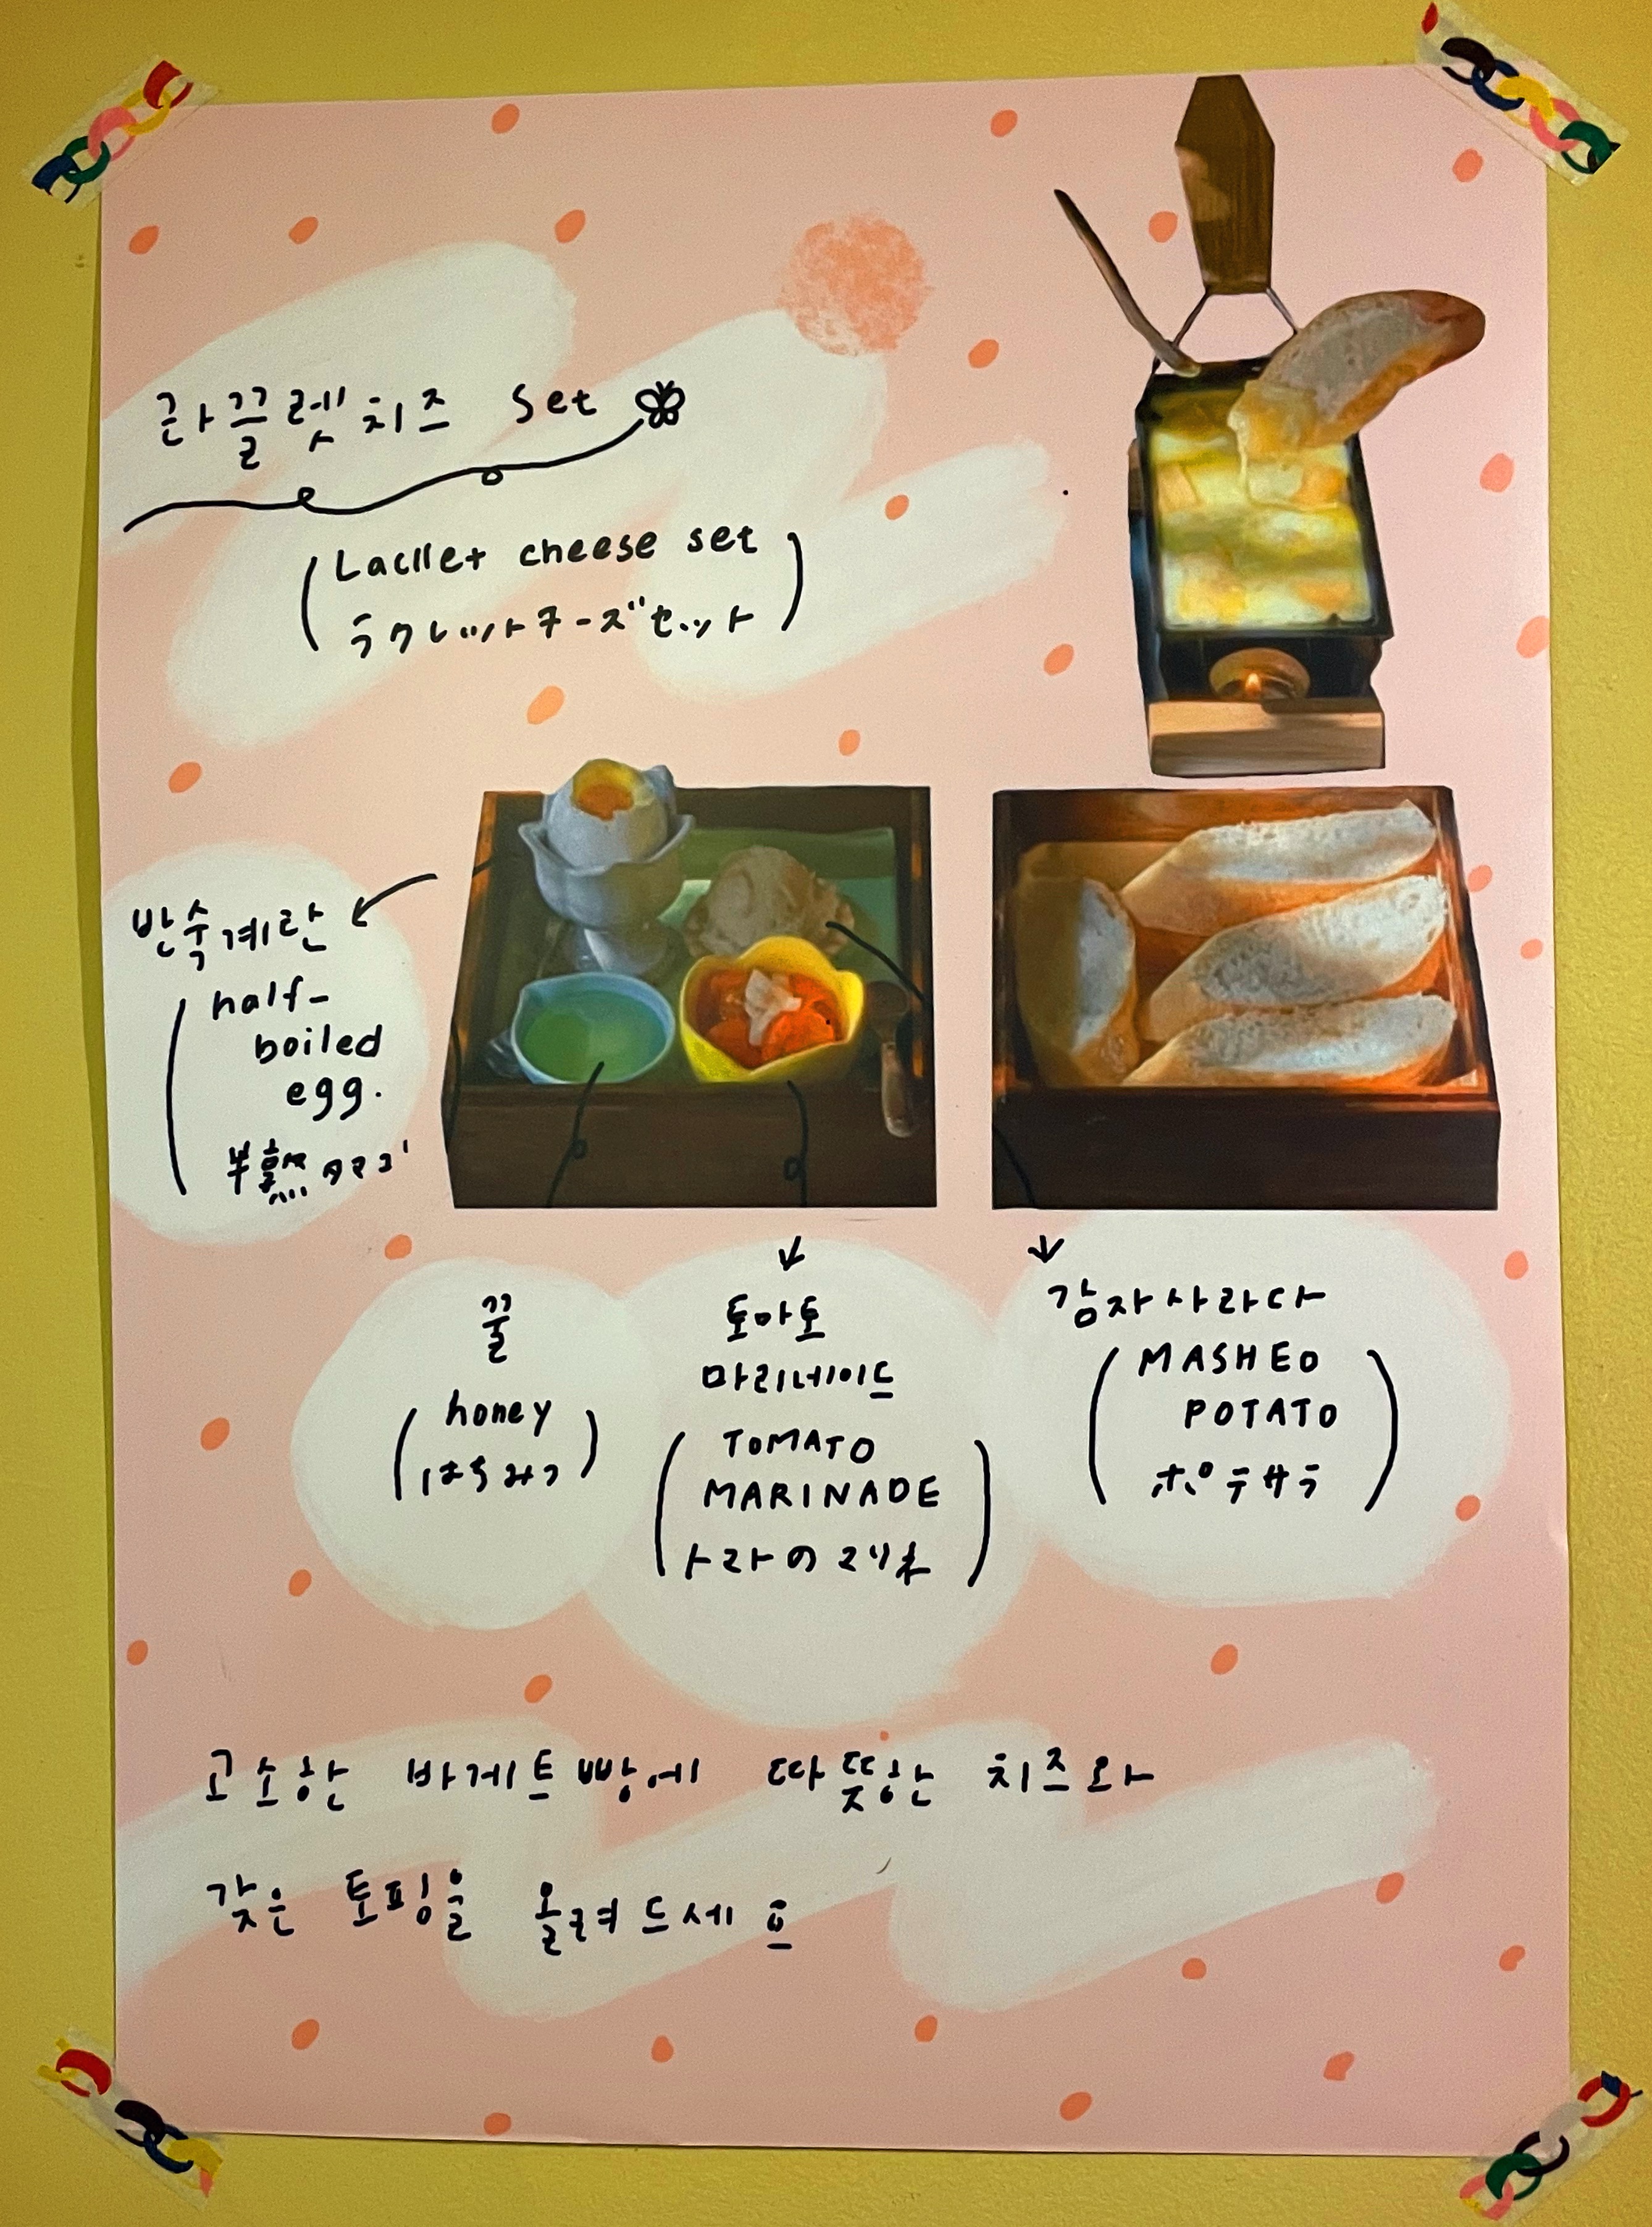 라끌렛치즈 set
(Lacllet cheese set
ラクレットチーズセット)
반숙계란
(half-
boiled
egg.
半熟タマゴ
꿀
(honey
はちみつ)
토마토
마리네이드
(TOMATO
MARINADE
トマトのマリネ)
감자사라다
(MASHED
POTATO
ポテサラ)
고소한 바게트빵에 따뜻한 치즈와
갖은 토핑을 올려드세요